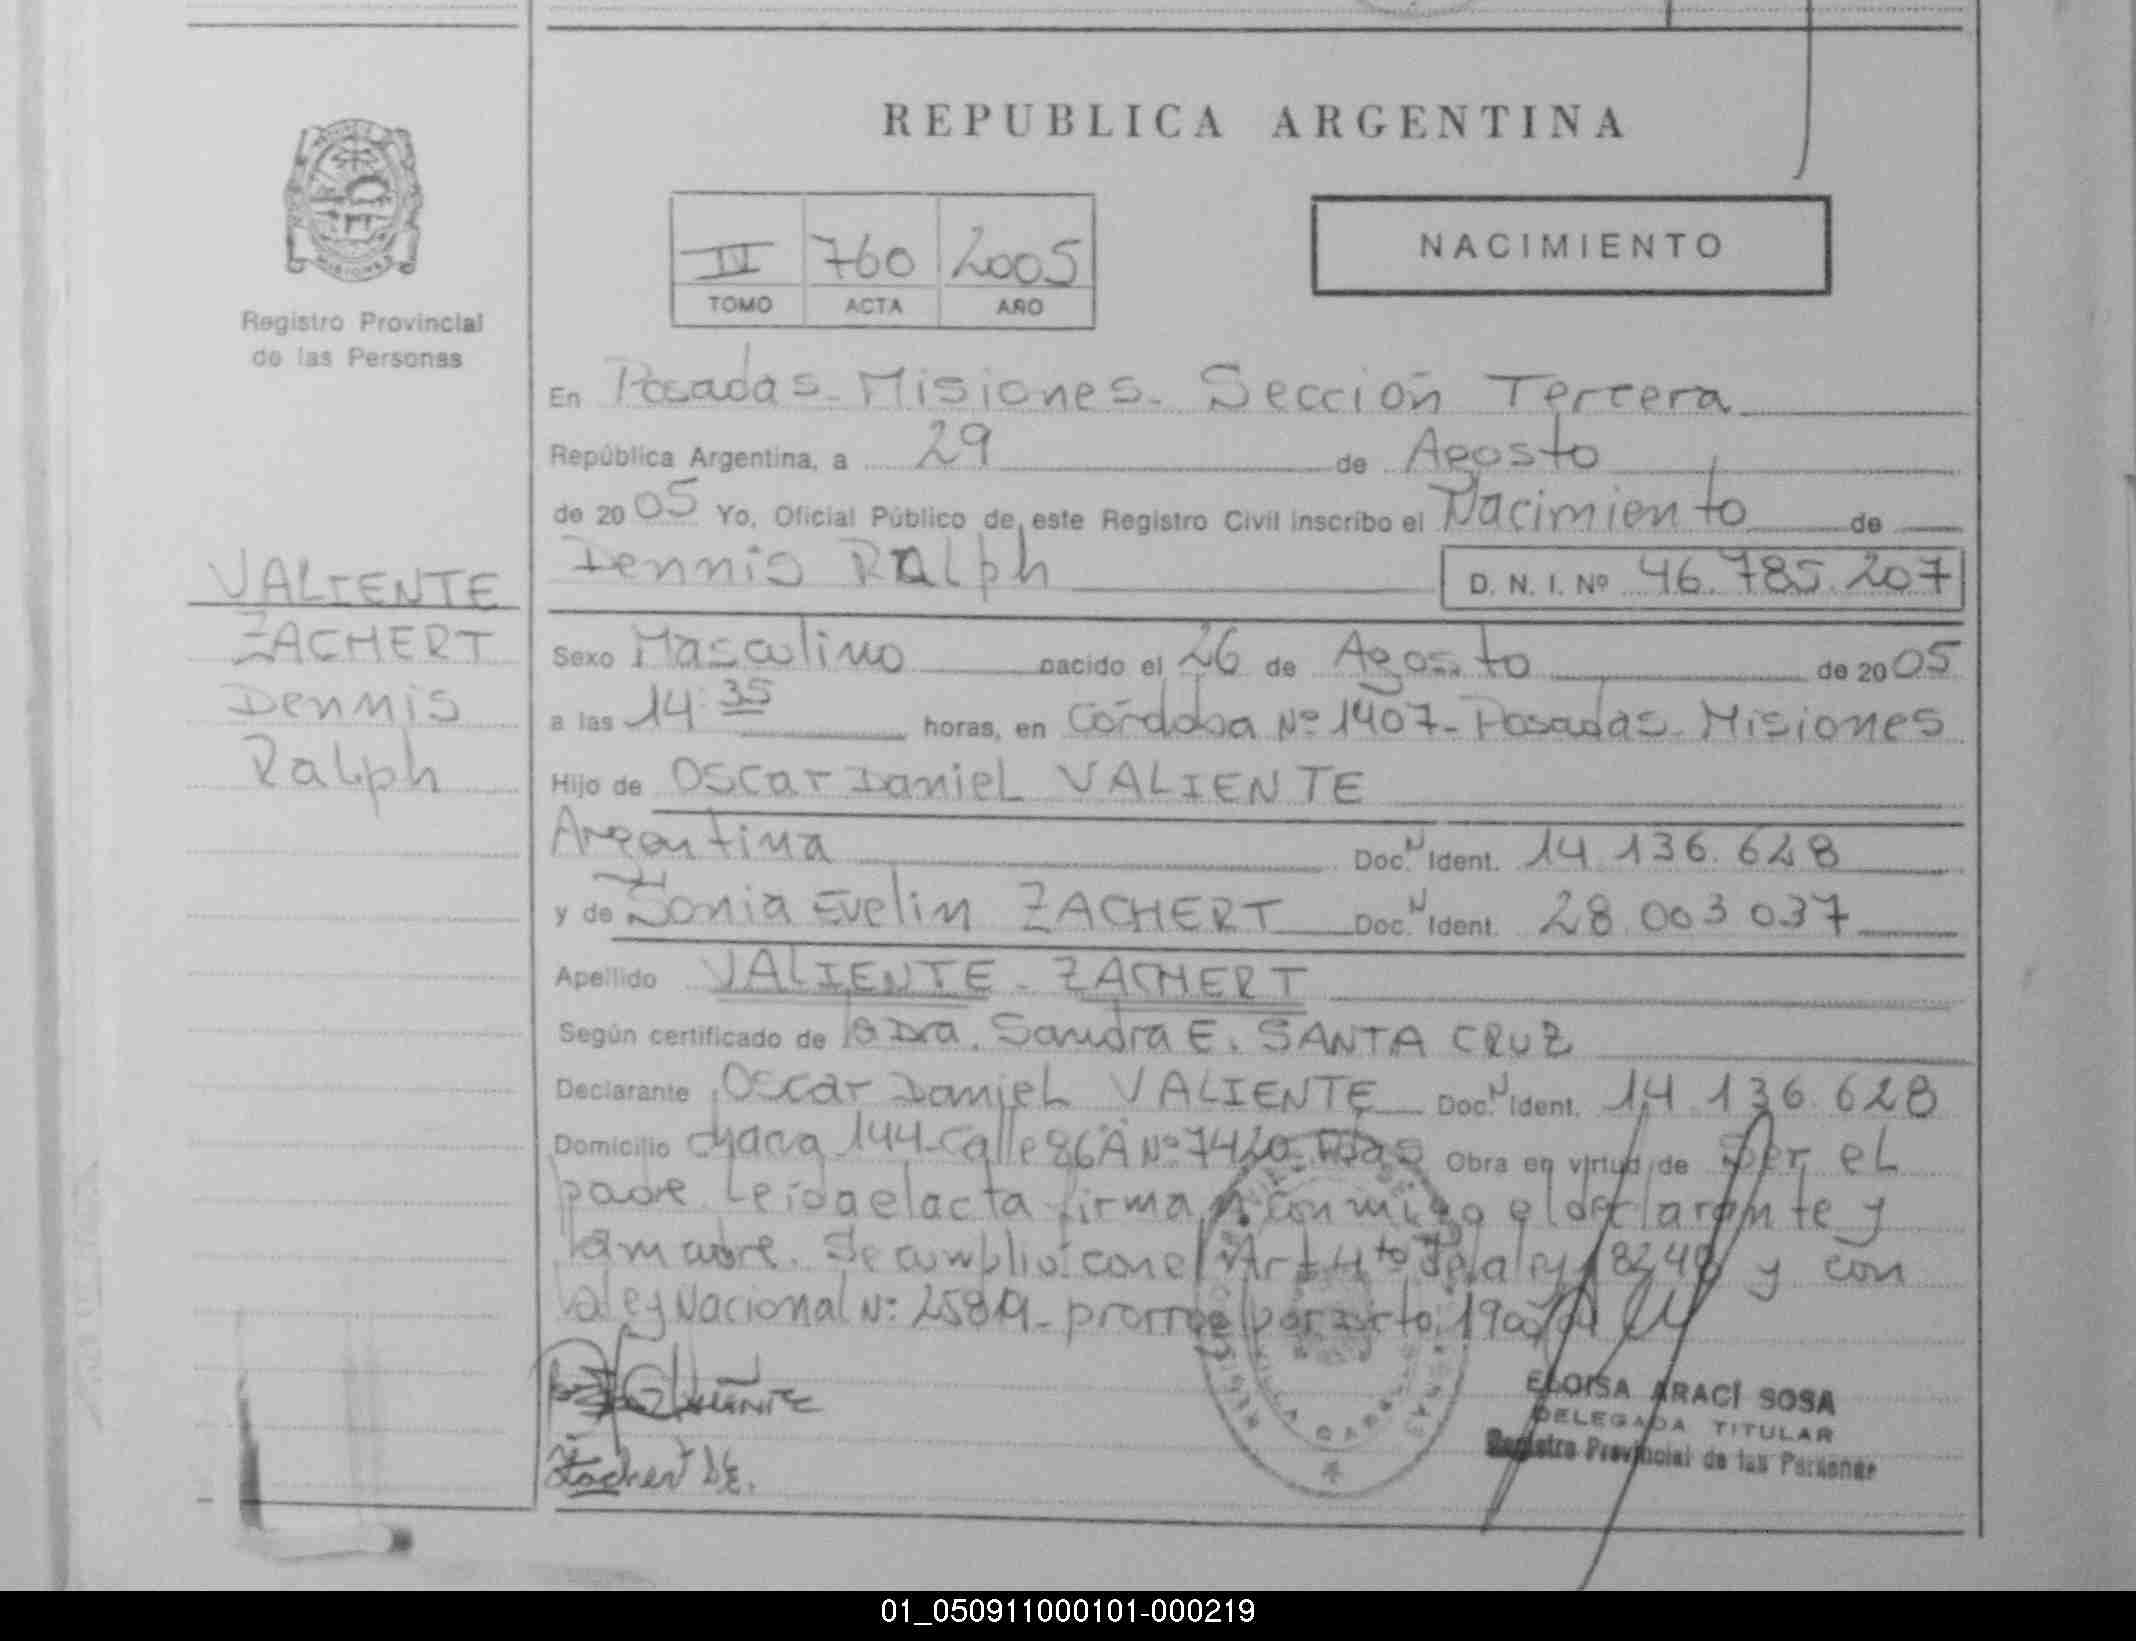 REPUBLICA ARGENTINA
NACIMIENTO
760 2005
TOMO ACTA AÑO
Registro Provincial
de las Personas
VALIENTE
ZACHERT
Dennis
Ralph
En Posadas - Misiones - Sección Tercera
República Argentina, a 29 de Agosto
de 2005 Yo, Oficial Público de este Registro Civil inscribo el Nacimiento de
Dennis Ralph D. N. I. Nº 46.785.207
Sexo Masculino nacido el 26 de Agosto de 2005
a las 14:35 horas, en Córdoba Nº 1407 - Posadas - Misiones
Hijo de Oscar Daniel VALIENTE
Argentina Doc. N Ident. 14.136.628
y de Sonia Evelin ZACHERT Doc. N Ident. 28.003.037
Apellido VALIENTE - ZACHERT
Según certificado de la Dra. Sandra E. SANTA CRUZ
Declarante Oscar Daniel VALIENTE Doc. N Ident. 14.136.628
Domicilio chacra 144 - Calle 86A Nº 7420 - Pdas Obra en virtud de Ser el
padre. Leida el acta firman conmigo el declarante y
la madre. Se cumplió con el Art 4to de la ley 18248 y con
la ley Nacional Nº: 25819 - por
VALIENTE
Zachert S.E.
ELOISA ARACÍ SOSA
DELEGADA TITULAR
Registro Provincial de las Personas
01_050911000101-000219